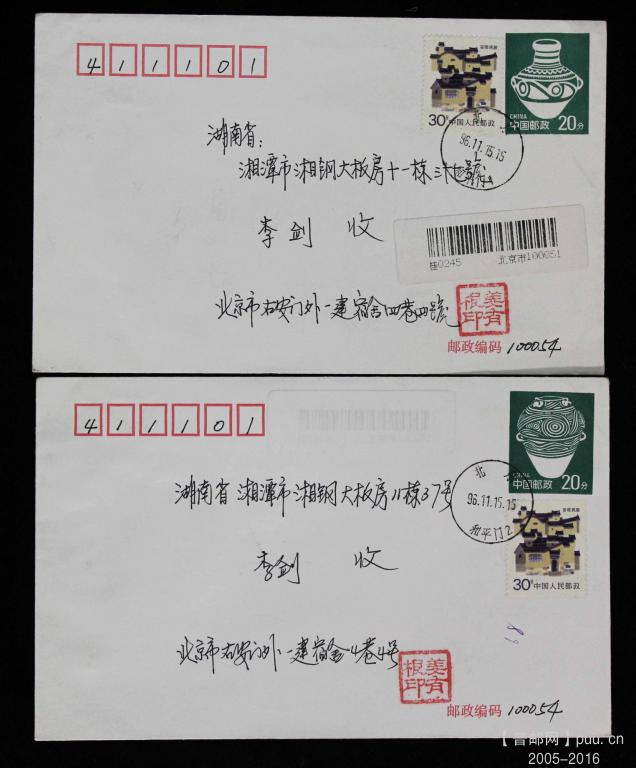 411101
安徽民居
30分 中国人民邮政
CHINA
中国邮政 20分
北京
96.11.15.15
湖南省:
湘潭市湘钢大板房十一栋三十七號
李剑 收
挂0245 北京市100051
北京市右安门外一建宿舍四巷四號
姜有根印
邮政编码 100054
411101
CHINA
中国邮政 20分
北京
96.11.15.15
和平门2
湖南省湘潭市湘钢大板房11栋37号
30分 中国人民邮政
李剑 收
北京市右安门外一建宿舍4巷4号
姜有根印
邮政编码 100054
【普邮网】puu.cn
2005-2016